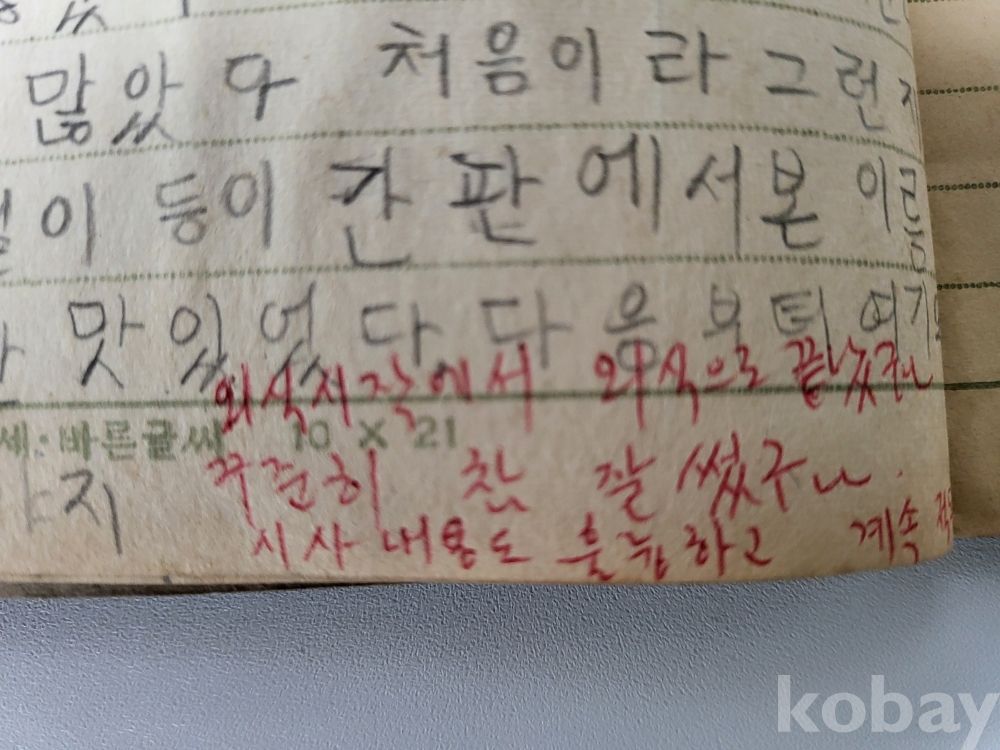 많았다 처음이라 그런지
이 등이 간판에서본 이름
맛있었다 다음부터 여기
외식시작에서 외식으로 끝났구나
세·바른글씨 10 X 21
지 꾸준히 참 잘 썼구나.
시사내용도 훌륭하고 계속
kobay